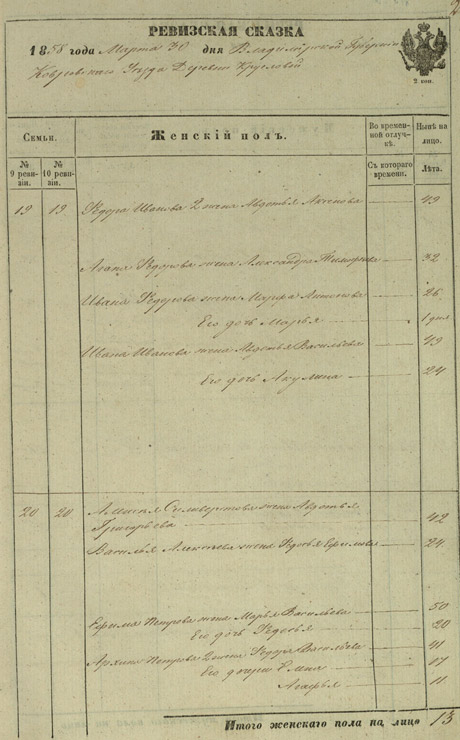 2
РЕВИЗСКАЯ СКАЗКА
1858 года Марта 30 дня Владимiрской Губернiи
Ковровскаго Уезда Деревни Кругловой
2 коп.
Семьи.
Женскiй полъ.
Во временной отлучкѣ.
Нынѣ на лицо.
№ 9 ревизiи.
№ 10 ревизiи.
Съ котораго времени.
Лѣта.
19 19 Ѳедора Иванова 2 жена Авдотья Аксенова 49
Агапа Ѳедорова жена Александра 32
Ивана Ѳедорова жена Марфа Антонова 26
Его дочь Марья 1 дня
Ивана Иванова жена Авдотья Васильева 49
Его дочь Акулина 24
20 20 Алексея Селиверстова жена Авдотья
Григорьева 42
Василья Алексѣева жена Ѳедосья Ефимова 24
Ефима Петрова жена Марья Васильева 50
Его дочь Ѳедосья 20
Архипа Петрова 2 жена Ѳедора Васильева 41
Его дочери 17
Агафья 11
Итого женскаго пола на лицо 13